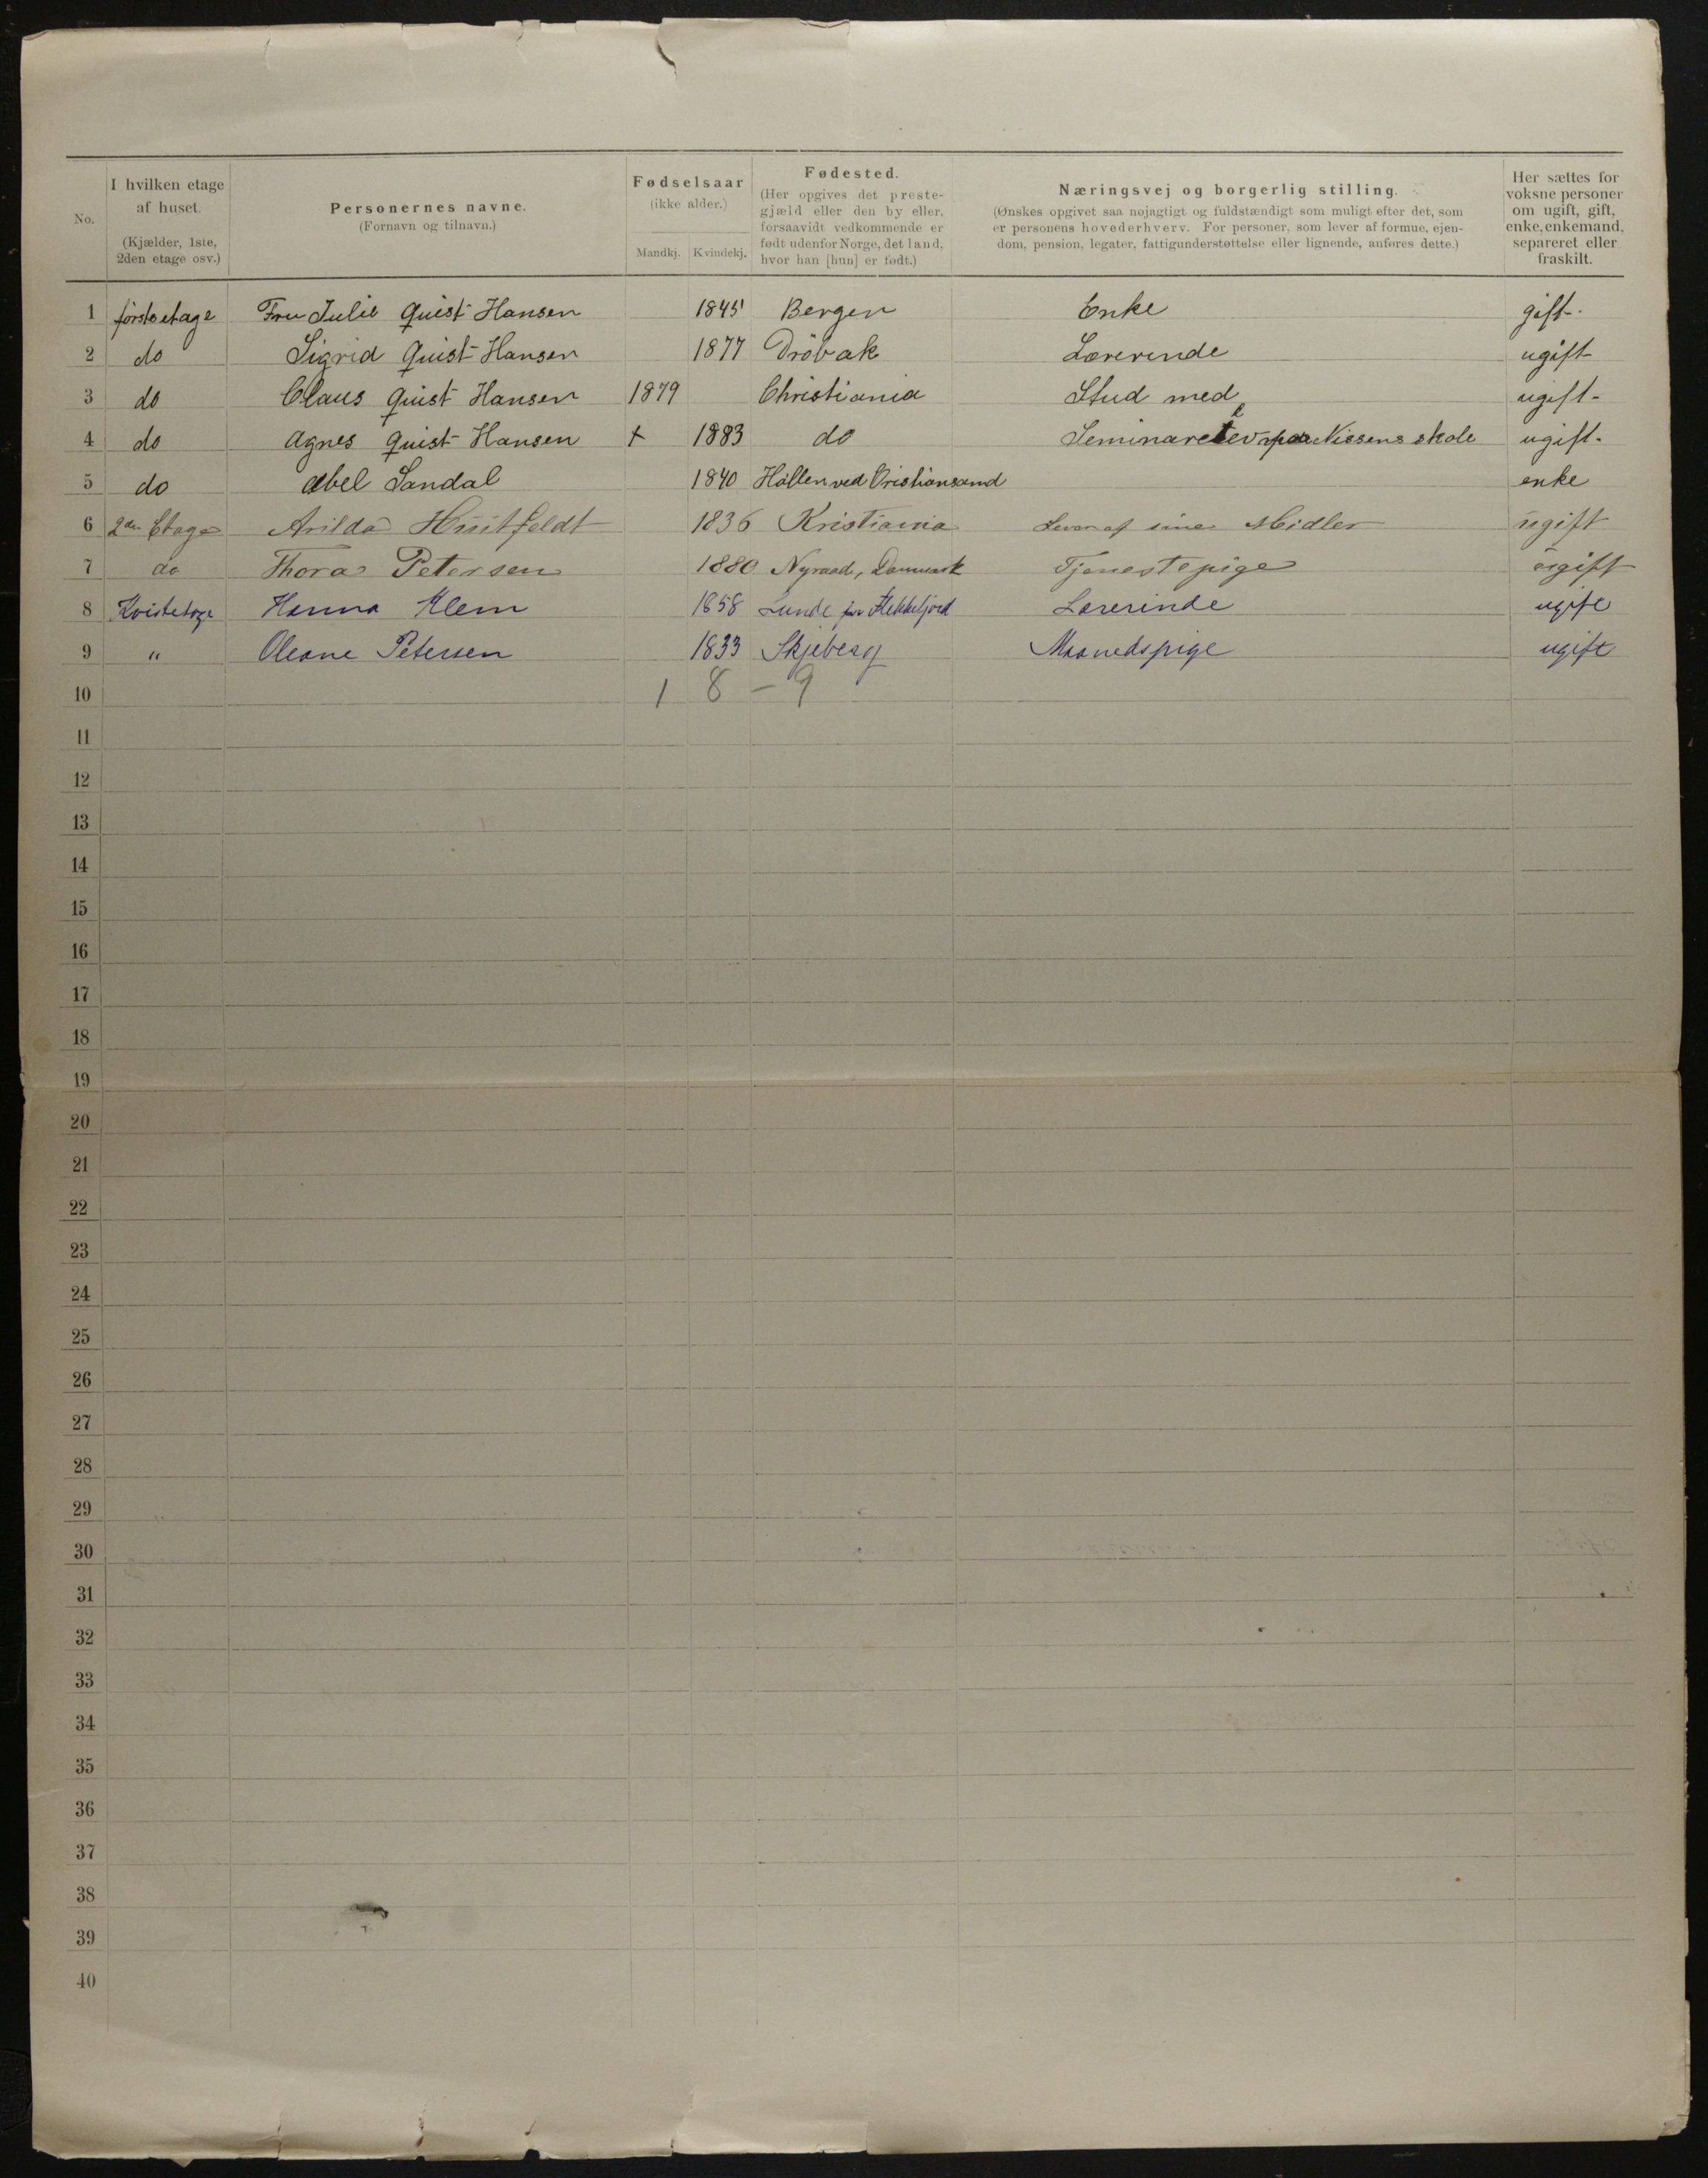 No.
I hvilken etage
af huset.
(Kjælder, 1ste,
2den etage osv.)
Personernes navne.
(Fornavn og tilnavn.)
Fødselsaar
(ikke alder.)
Mandkj. Kvindekj.
Fødested.
(Her opgives det preste-
gjæld eller den by eller,
forsaavidt vedkommende er
født udenfor Norge, det land,
hvor han [hun] er født.)
Næringsvej og borgerlig stilling.
(Ønskes opgivet saa nøjagtigt og fuldstændigt som muligt efter det, som
er personens hovederhverv. For personer, som lever af formue, ejen-
dom, pension, legater, fattigunderstøttelse eller lignende, anføres dette.)
Her sættes for
voksne personer
om ugift, gift,
enke, enkemand,
separeret eller
fraskilt.
1 første etage Fru Julie Quist-Hansen 1845 Bergen Enke gift.
2 do Sigrid Quist-Hansen 1877 Dröbak Lærerinde ugift
3 do Claus Quist-Hansen 1879 Christiania Stud med ugift-
4 do Agnes Quist-Hansen + 1883 do Seminarelev paa Nissens skole ugift.
5 do Abel Sandal 1840 Hallen ved Cristiansand enke
6 2den Etage Arilda Huitfeldt 1836 Kristiania Lever af sine Midler ugift
7 do Thora Petersen 1880 Nyraad, Danmark Tjenestepige ugift
8 Kvistetage Hanna Klem 1858 Lunde pr Flekkefjord Lærerinde ugift
9 " Oleane Petersen 1833 Skjeberg Maanedspige ugift
10 1 8 – 9
11
12
13
14
15
16
17
18
19
20
21
22
23
24
25
26
27
28
29
30
31
32
33
34
35
36
37
38
39
40